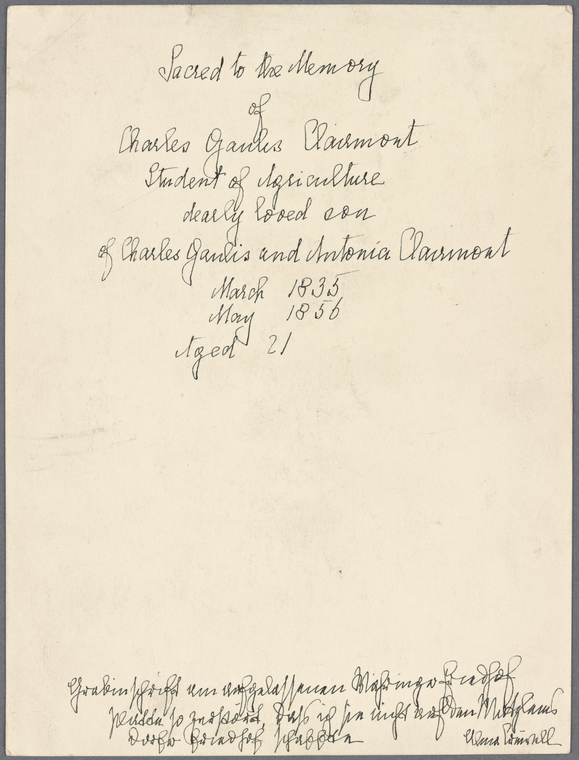 Sacred to the Memory
of
Charles Gaulis Clairmont
Student of Agriculture
dearly loved son
of Charles Gaulis and Antonia Clairmont
March 1835
May 1856
Aged 21
Grabinschrift am aufgelassenen Währinger Friedhof
so zerstört, dass ich sie nicht auf den Matzleins
dorfer Friedhof schaffte
Alma